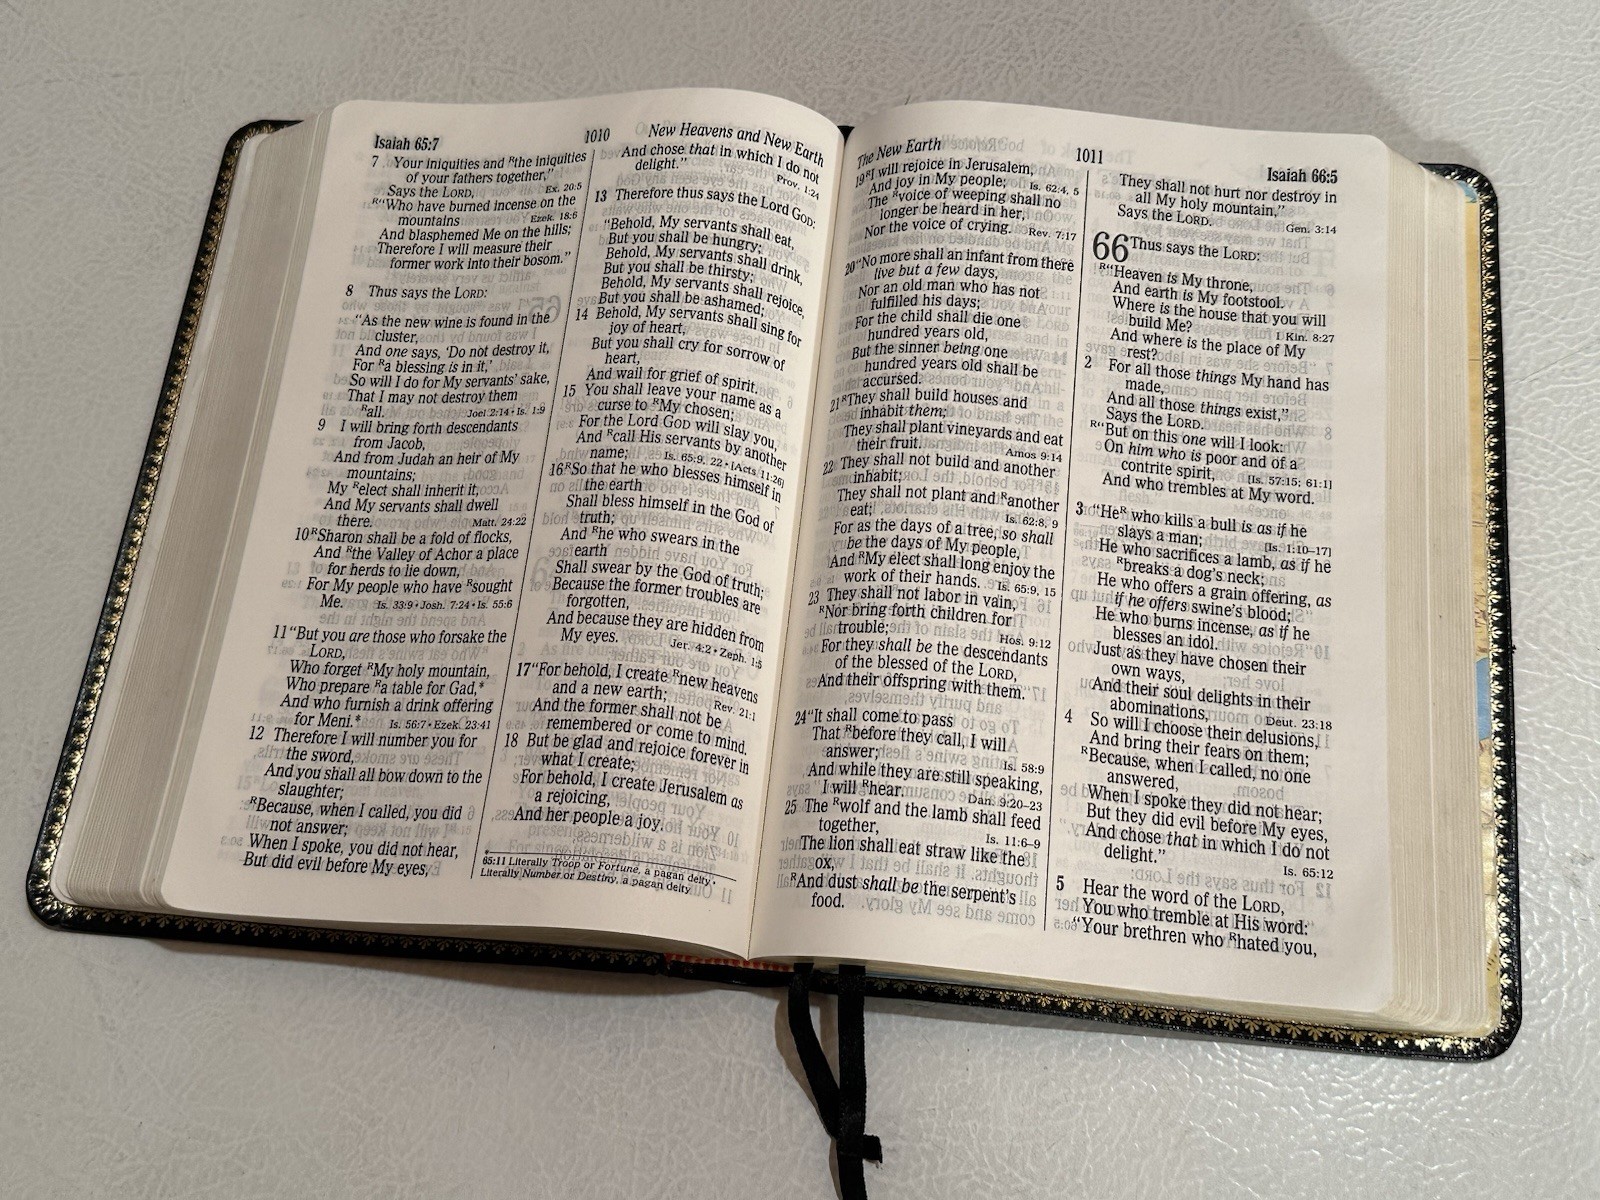 Isaiah 65:7
1010
New Heavens and New Earth
7 Your iniquities and ᴿthe iniquities
of your fathers together,”
Says the LORD, Ex. 20:5
ᴿ“Who have burned incense on the
mountains Ezek. 18:6
And blasphemed Me on the hills;
Therefore I will measure their
former work into their bosom.”
8 Thus says the LORD:
“As the new wine is found in the
cluster,
And one says, ‘Do not destroy it,
For ᴿa blessing is in it,’
So will I do for My servants’ sake,
That I may not destroy them
ᴿall. Joel 2:14 • Is. 1:9
9 I will bring forth descendants
from Jacob,
And from Judah an heir of My
mountains;
My ᴿelect shall inherit it,
And My servants shall dwell
there. Matt. 24:22
10 ᴿSharon shall be a fold of flocks,
And ᴿthe Valley of Achor a place
for herds to lie down,
For My people who have ᴿsought
Me. Is. 33:9 • Josh. 7:24 • Is. 55:6
11 “But you are those who forsake the
LORD,
Who forget ᴿMy holy mountain,
Who prepare ᴿa table for Gad,*
And who furnish a drink offering
for Meni.* Is. 56:7 • Ezek. 23:41
12 Therefore I will number you for
the sword,
And you shall all bow down to the
slaughter;
ᴿBecause, when I called, you did
not answer;
When I spoke, you did not hear,
But did evil before My eyes,
And chose that in which I do not
delight.” Prov. 1:24
13 Therefore thus says the Lord GOD:
“Behold, My servants shall eat,
But you shall be hungry;
Behold, My servants shall drink,
But you shall be thirsty;
Behold, My servants shall rejoice,
But you shall be ashamed;
14 Behold, My servants shall sing for
joy of heart,
But you shall cry for sorrow of
heart,
And wail for grief of spirit.
15 You shall leave your name as a
curse to ᴿMy chosen;
For the Lord GOD will slay you,
And ᴿcall His servants by another
name; Is. 65:9, 22 • [Acts 11:26]
16 ᴿSo that he who blesses himself in
the earth
Shall bless himself in the God of
truth;
And ᴿhe who swears in the
earth
Shall swear by the God of truth;
Because the former troubles are
forgotten,
And because they are hidden from
My eyes. Jer. 4:2 • Zeph. 1:5
17 “For behold, I create ᴿnew heavens
and a new earth; Rev. 21:1
And the former shall not be
remembered or come to mind.
18 But be glad and rejoice forever in
what I create;
For behold, I create Jerusalem as
a rejoicing,
And her people a joy.
*
65:11 Literally Troop or Fortune, a pagan deity •
Literally Number or Destiny, a pagan deity
The New Earth
1011
Isaiah 66:5
19 ᴿI will rejoice in Jerusalem,
And joy in My people; Is. 62:4, 5
The ᴿvoice of weeping shall no
longer be heard in her,
Nor the voice of crying. Rev. 7:17
20 “No more shall an infant from there
live but a few days,
Nor an old man who has not
fulfilled his days;
For the child shall die one
hundred years old,
But the sinner being one
hundred years old shall be
accursed.
21 ᴿThey shall build houses and
inhabit them;
They shall plant vineyards and eat
their fruit. Amos 9:14
22 They shall not build and another
inhabit;
They shall not plant and ᴿanother
eat; Is. 62:8, 9
For as the days of a tree, so shall
be the days of My people,
And ᴿMy elect shall long enjoy the
work of their hands. Is. 65:9, 15
23 They shall not labor in vain,
ᴿNor bring forth children for
trouble; Hos. 9:12
For they shall be the descendants
of the blessed of the LORD,
And their offspring with them.
24 “It shall come to pass
That ᴿbefore they call, I will
answer; Is. 58:9
And while they are still speaking,
I will ᴿhear. Dan. 9:20–23
25 The ᴿwolf and the lamb shall feed
together, Is. 11:6–9
The lion shall eat straw like the
ox,
ᴿAnd dust shall be the serpent’s
food.
They shall not hurt nor destroy in
all My holy mountain,”
Says the LORD. Gen. 3:14
66 Thus says the LORD:
ᴿ“Heaven is My throne,
And earth is My footstool.
Where is the house that you will
build Me? 1 Kin. 8:27
And where is the place of My
rest?
2 For all those things My hand has
made,
And all those things exist,”
Says the LORD.
ᴿ“But on this one will I look:
On him who is poor and of a
contrite spirit, [Is. 57:15; 61:1]
And who trembles at My word.
3 “Heᴿ who kills a bull is as if he
slays a man; [Is. 1:10–17]
He who sacrifices a lamb, as if he
ᴿbreaks a dog’s neck;
He who offers a grain offering, as
if he offers swine’s blood;
He who burns incense, as if he
blesses an idol.
Just as they have chosen their
own ways,
And their soul delights in their
abominations, Deut. 23:18
4 So will I choose their delusions,
And bring their fears on them;
ᴿBecause, when I called, no one
answered,
When I spoke they did not hear;
But they did evil before My eyes,
And chose that in which I do not
delight.”
Is. 65:12
5 Hear the word of the LORD,
You who tremble at His word:
“Your brethren who ᴿhated you,